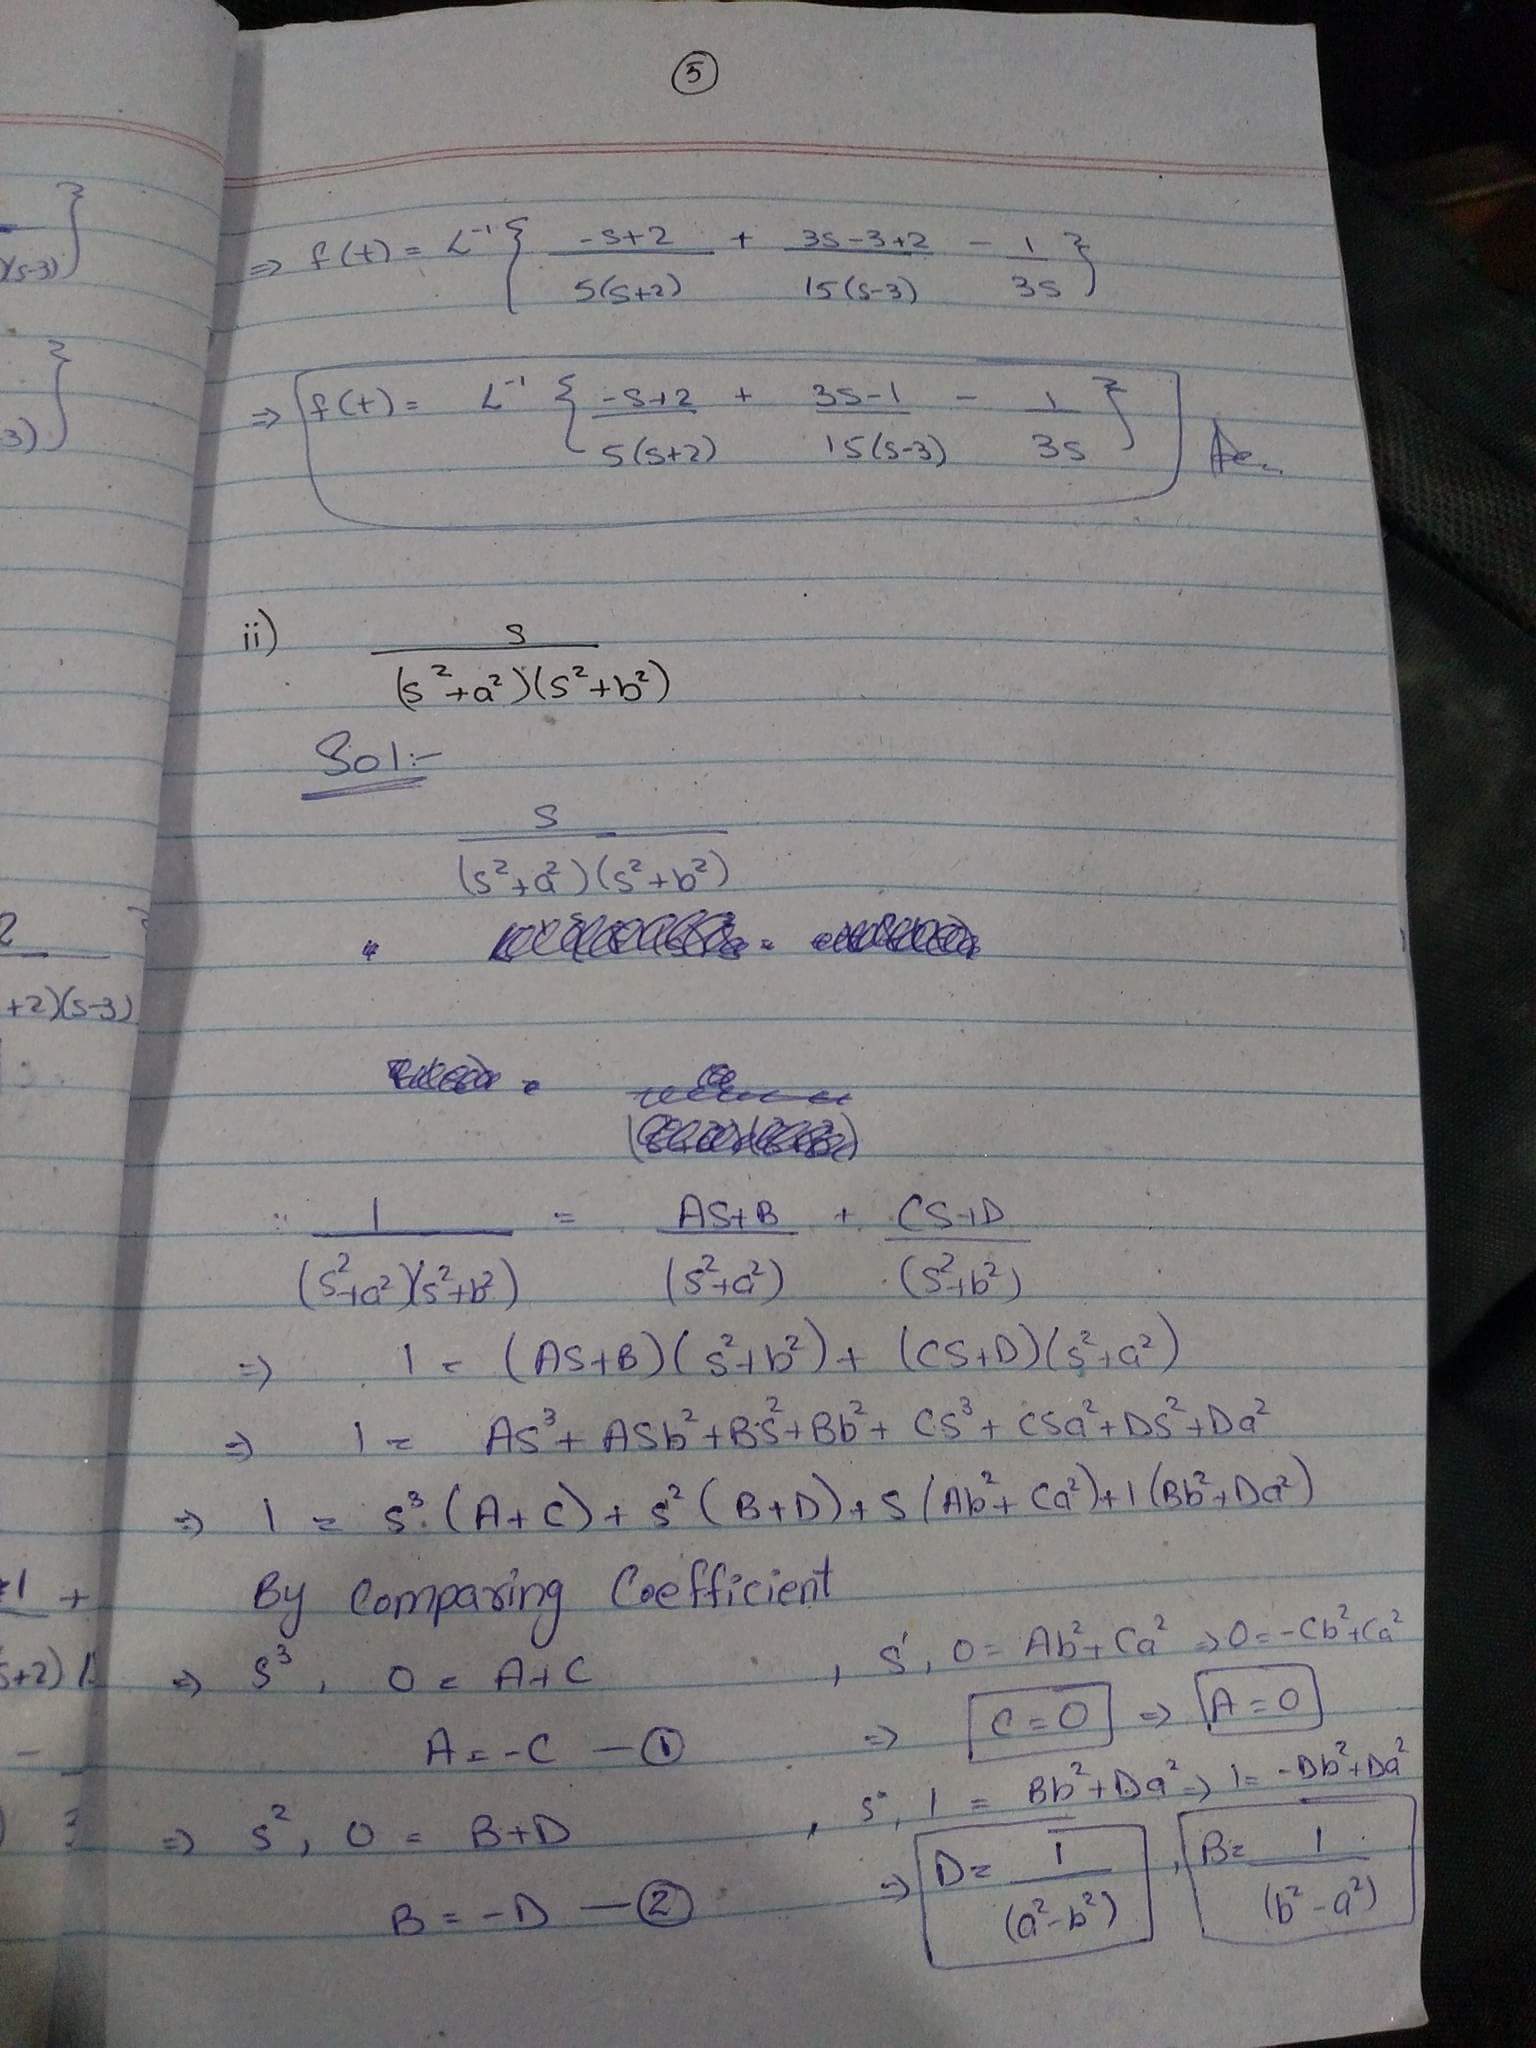 5
⇒ f(t) = L⁻¹ { -s+2 / 5(s+2) + 3s-3+2 / 15(s-3) - 1 / 3s }
⇒ f(t) = L⁻¹ { -s+2 / 5(s+2) + 3s-1 / 15(s-3) - 1 / 3s }
ii) s / (s²+a²)(s²+b²)
Sol:-
s / (s²+a²)(s²+b²)
∵ 1 / (s²+a²)(s²+b²) = As+B / (s²+a²) + Cs+D / (s²+b²)
⇒ 1 = (As+B)(s²+b²) + (Cs+D)(s²+a²)
⇒ 1 = As³ + Asb² + Bs² + Bb² + Cs³ + Csa² + Ds² + Da²
⇒ 1 = s³(A+C) + s²(B+D) + s(Ab²+Ca²) + 1(Bb²+Da²)
By Comparing Coefficient
⇒ s³, 0 = A+C
A = -C — ①
⇒ s², 0 = B+D
B = -D — ②
, s¹, 0 = Ab²+Ca² ⇒ 0 = -Cb²+Ca²
⇒ C = 0 ⇒ A = 0
, s°, 1 = Bb²+Da² ⇒ 1 = -Db²+Da²
⇒ D = 1 / (a²-b²) , B = 1 / (b²-a²)
)(s-3) }
-3) }
2
+2)(s-3)